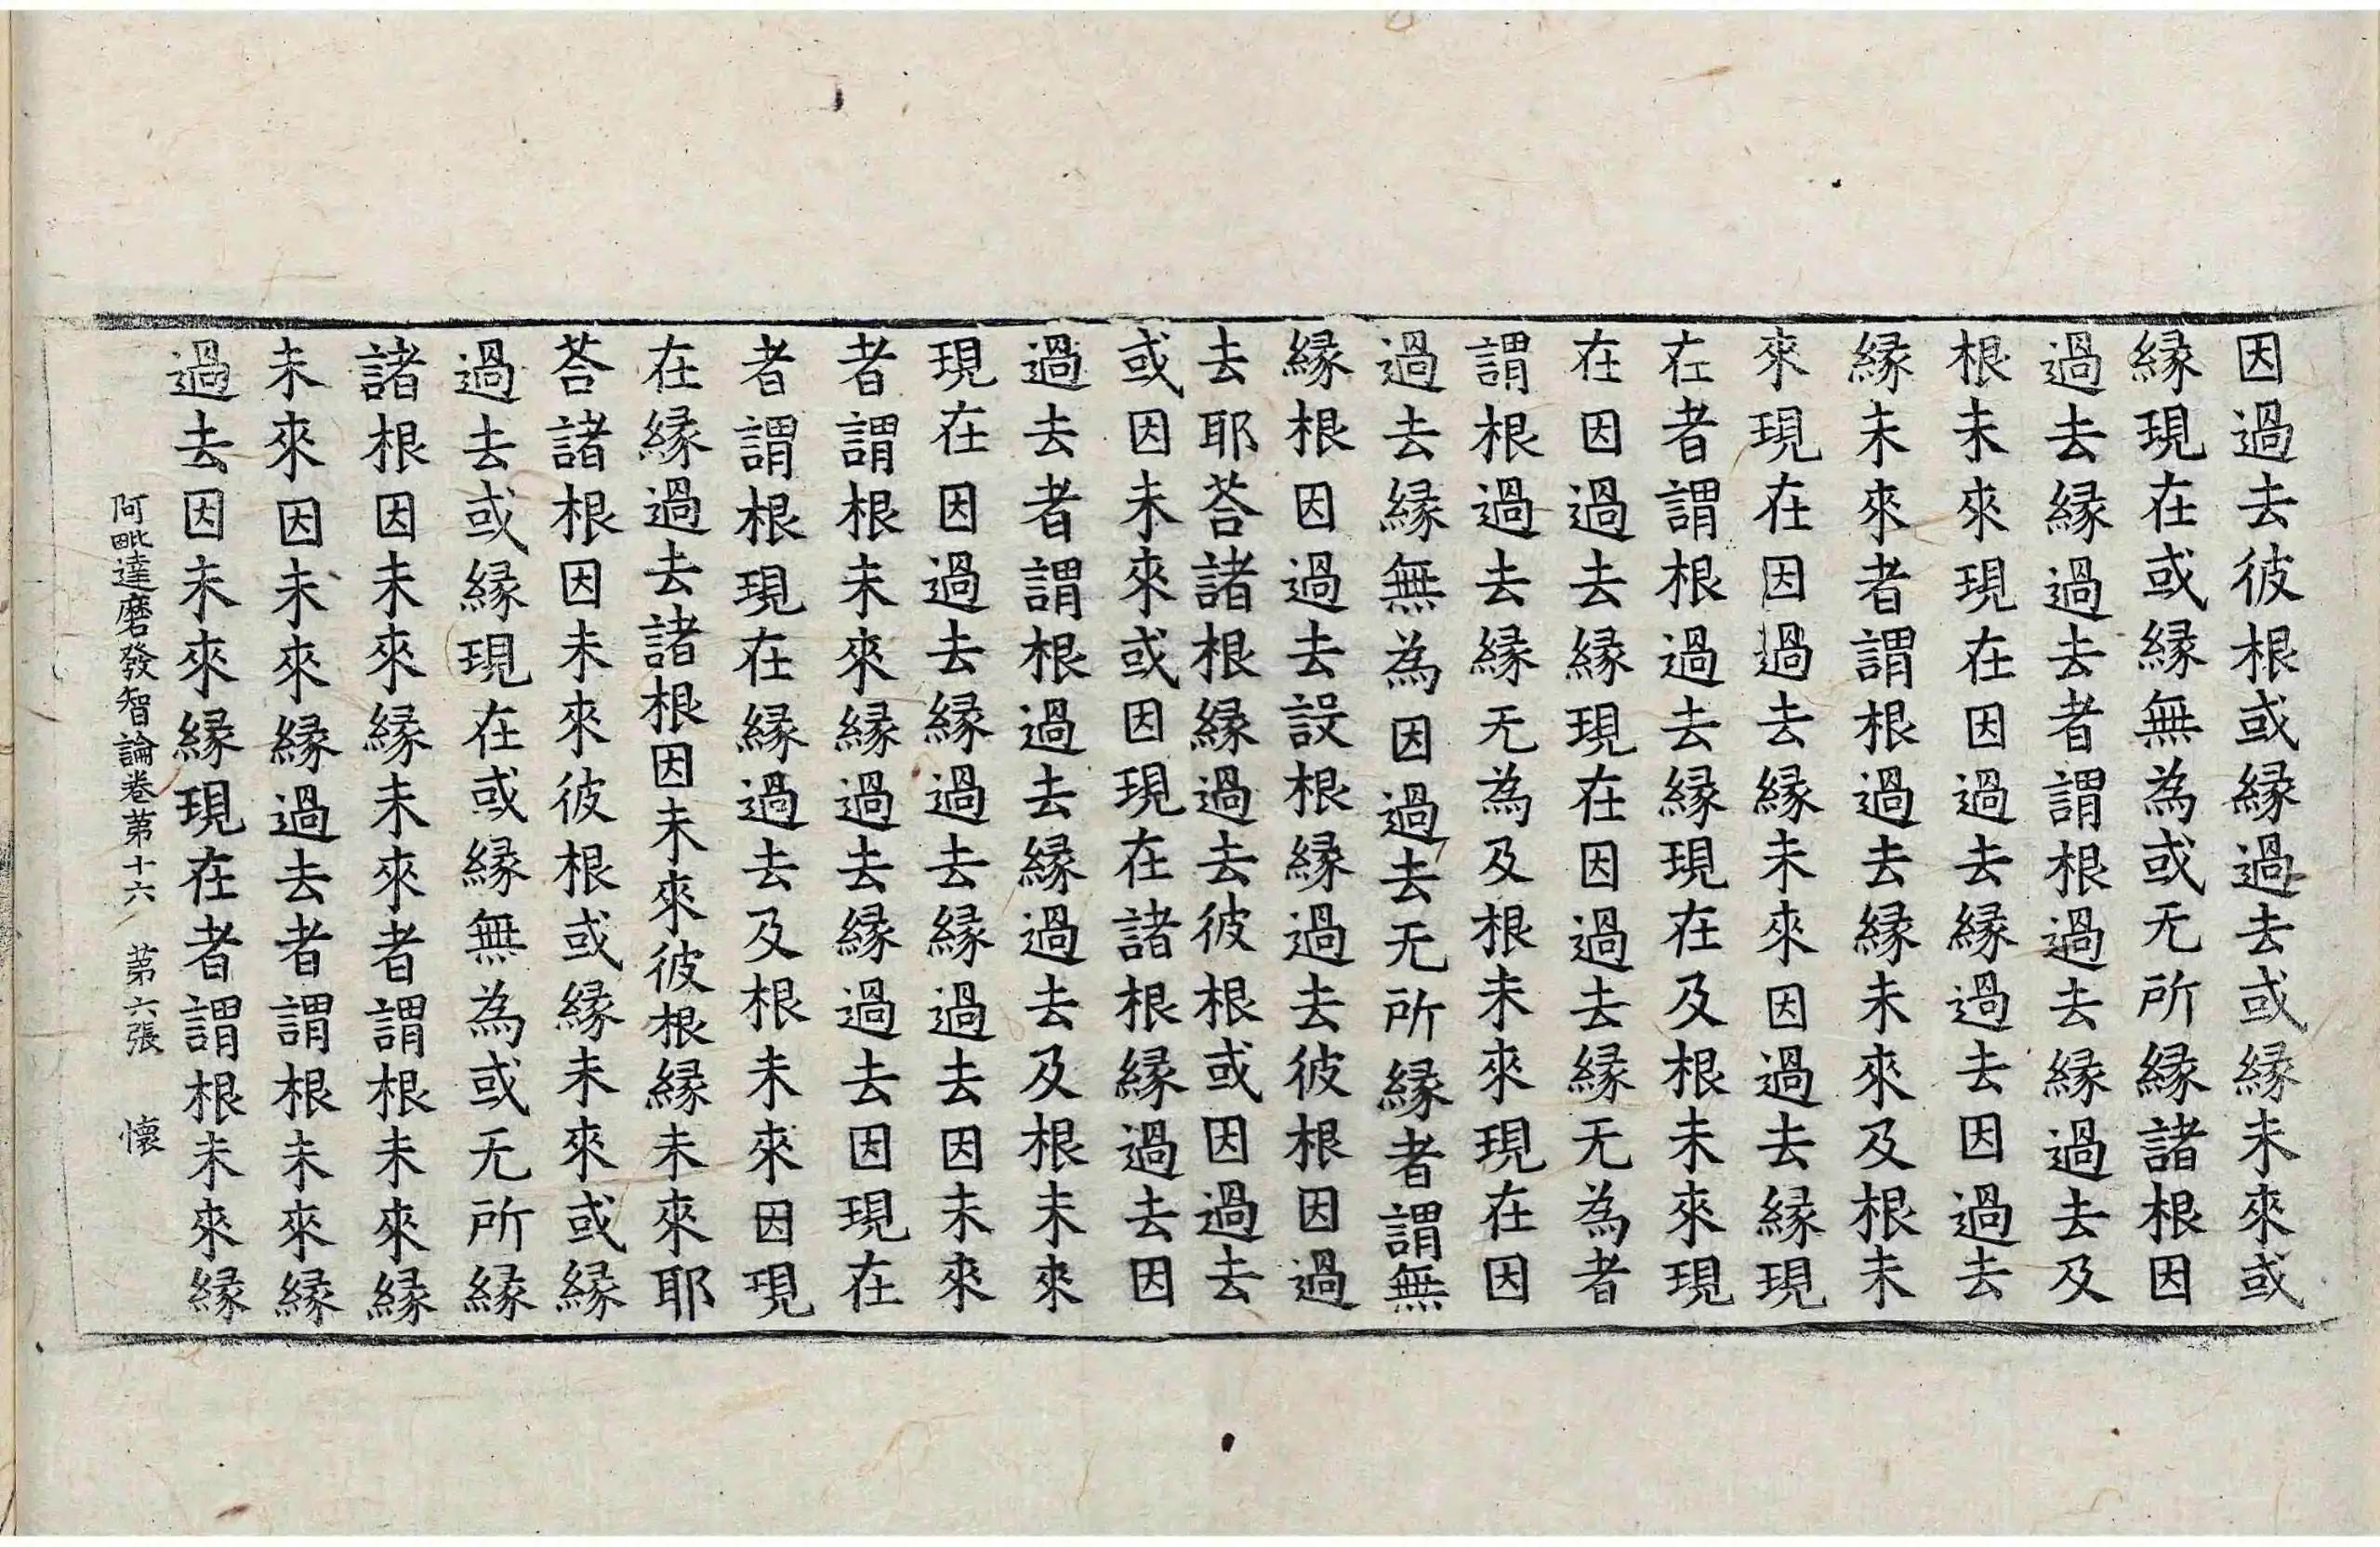 因過去彼根或縁過去或縁未來或
縁現在或縁無為或无所縁諸根因
過去縁過去者謂根過去縁過去及
根未來現在因過去縁過去因過去
縁未來者謂根過去縁未來及根未
來現在因過去縁未來因過去縁現
在者謂根過去縁現在及根未來現
在因過去縁現在因過去縁无為者
謂根過去縁无為及根未來現在因
過去縁無為因過去无所縁者謂無
縁根因過去設根縁過去彼根因過
去耶荅諸根縁過去彼根或因過去
或因未來或因現在諸根縁過去因
過去者謂根過去縁過去及根未來
現在因過去縁過去縁過去因未來
者謂根未來縁過去縁過去因現在
者謂根現在縁過去及根未來因現
在縁過去諸根因未來彼根縁未來耶
荅諸根因未來彼根或縁未來或縁
過去或縁現在或縁無為或无所縁
諸根因未來縁未來者謂根未來縁
未來因未來縁過去者謂根未來縁
過去因未來縁現在者謂根未來縁
阿毗達磨發智論卷第十六 第六張 懷